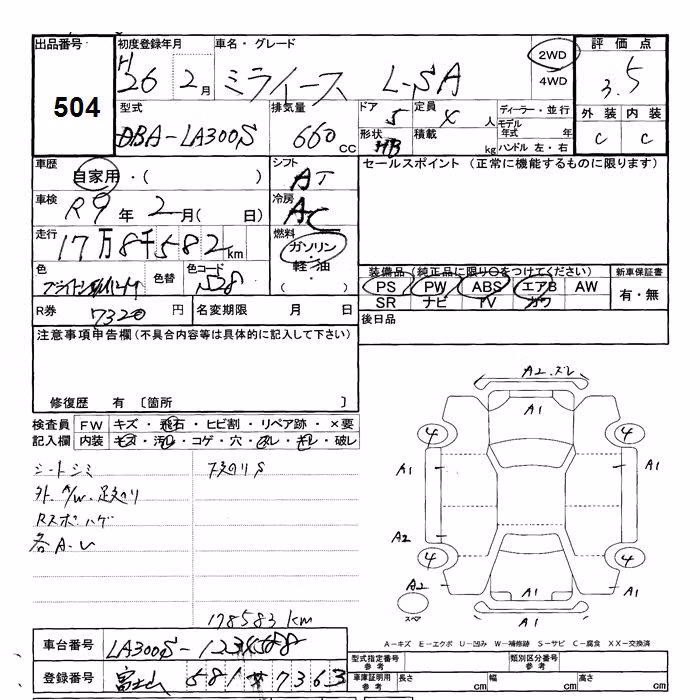 出品番号 初度登録年月 車名・グレード 評価点
504
H26年 2月 ミライース L-SA 2WD 4WD 3.5
型式 排気量 ドア 定員 ディーラー・並行 外装 内装
DBA-LA300S 660cc 5 4人 モデル年式 年 C C
形状 積載 kg ハンドル 左・右
HB
車歴 自家用・( ) シフト AT セールスポイント(正常に機能するものに限ります)
車検 R9年 2月( 日) 冷房 AC
走行 17万8千582km 燃料 ガソリン・軽油・( )
色 色替 色コード S28
装備品(純正品に限り○をつけてください) 新車保証書
PS PW ABS エアB AW 有・無
SR ナビ TV カワ
R券 7320円 名変期限 月 日 後日品
注意事項申告欄(不具合内容等は具体的に記入して下さい)
修復歴 有 〔箇所 〕
検査員 FW キズ・飛石・ヒビ割・リペア跡・×要
記入欄 内装 キズ・汚れ・コゲ・穴・スレ・キレ・破レ
シートシミ 下廻りS
外.A/W.足廻り
Rスポ ハゲ
各A.U
178583km
A2.ズレ
A1
4 4
A1 A1
A2
4 4
A2 A1 A1
スペア A1
A-キズ E-エクボ U-凹み W-補修跡 S-サビ C-腐食 XX-交換済
車台番号 LA300S- 型式指定番号 参考 類別区分番号 参考
登録番号 富士山 581 7363 車庫証明用 参考 長さ cm 幅 cm 高さ cm